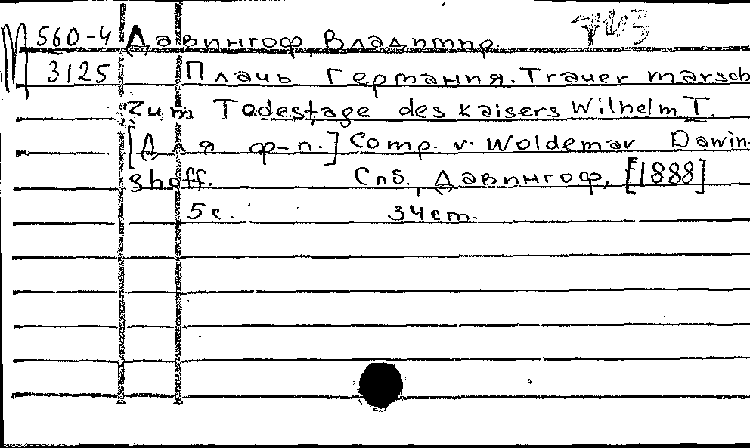 560-4 Давингоф, Владимир.
3125 Плачь Германия. Trauer marsch
zum Todestage des Kaisers Wilhelm I.
[Для ф-п.] Comp. v. Woldemar Dawin-
ghoff. Спб., Давингоф, [1888]
5 с. 34 cm.